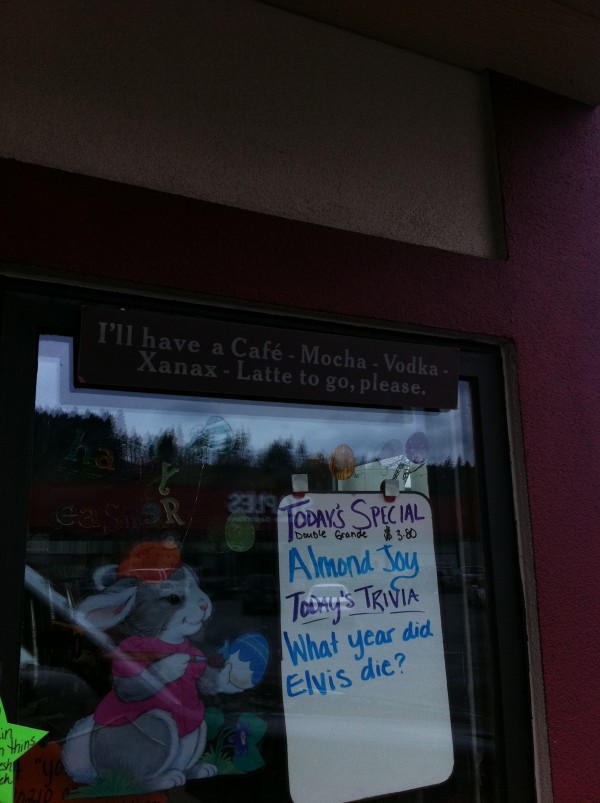 I'll have a Café - Mocha - Vodka -
Xanax - Latte to go, please.
Happy
EaSTER
TODAY'S SPECIAL
Double Grande $3.80
Almond Joy
TODAY'S TRIVIA
What year did
Elvis die?